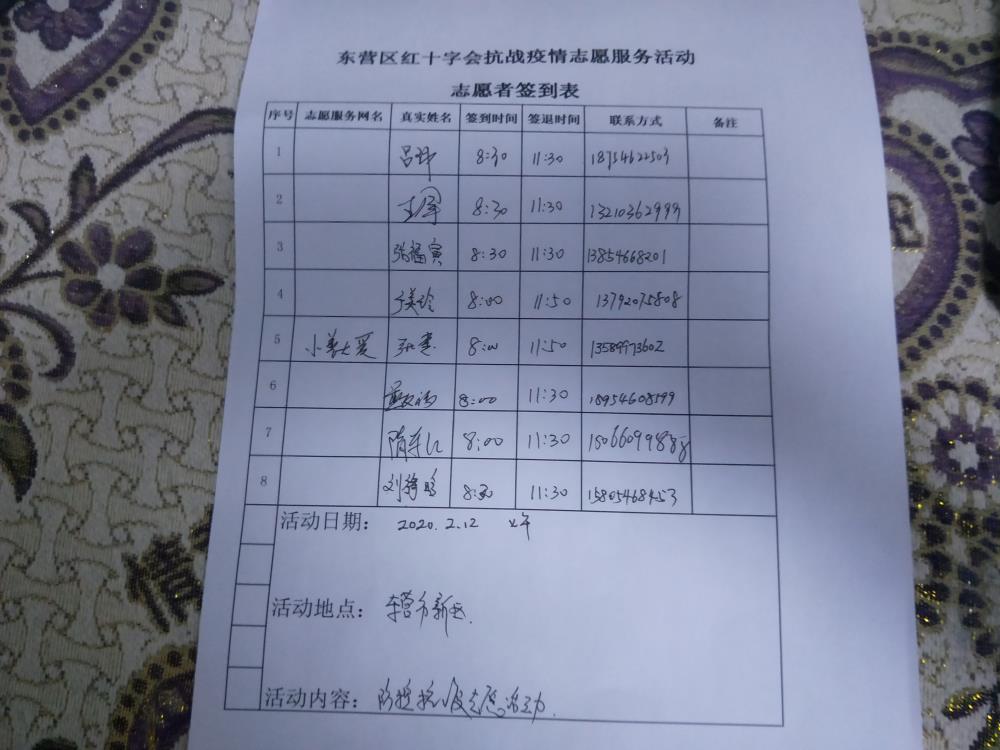 东营区红十字会抗战疫情志愿服务活动
志愿者签到表
序号 志愿服务网名 真实姓名 签到时间 签退时间 联系方式 备注
1 8:30 11:30 18754622503
2 8:30 11:30 13210362999
3 张福寅 8:30 11:30 13854668201
4 于美玲 8:00 11:50 13792075808
5 小善大爱 8:00 11:50 13589973602
6 8:00 11:30 18954608199
7 隋 8:00 11:30 15066099888
8 刘 8:30 11:30 15805468453
活动日期: 2020.2.12 上午
活动地点: 东营市新区.
活动内容: 防控抗疫志愿活动.